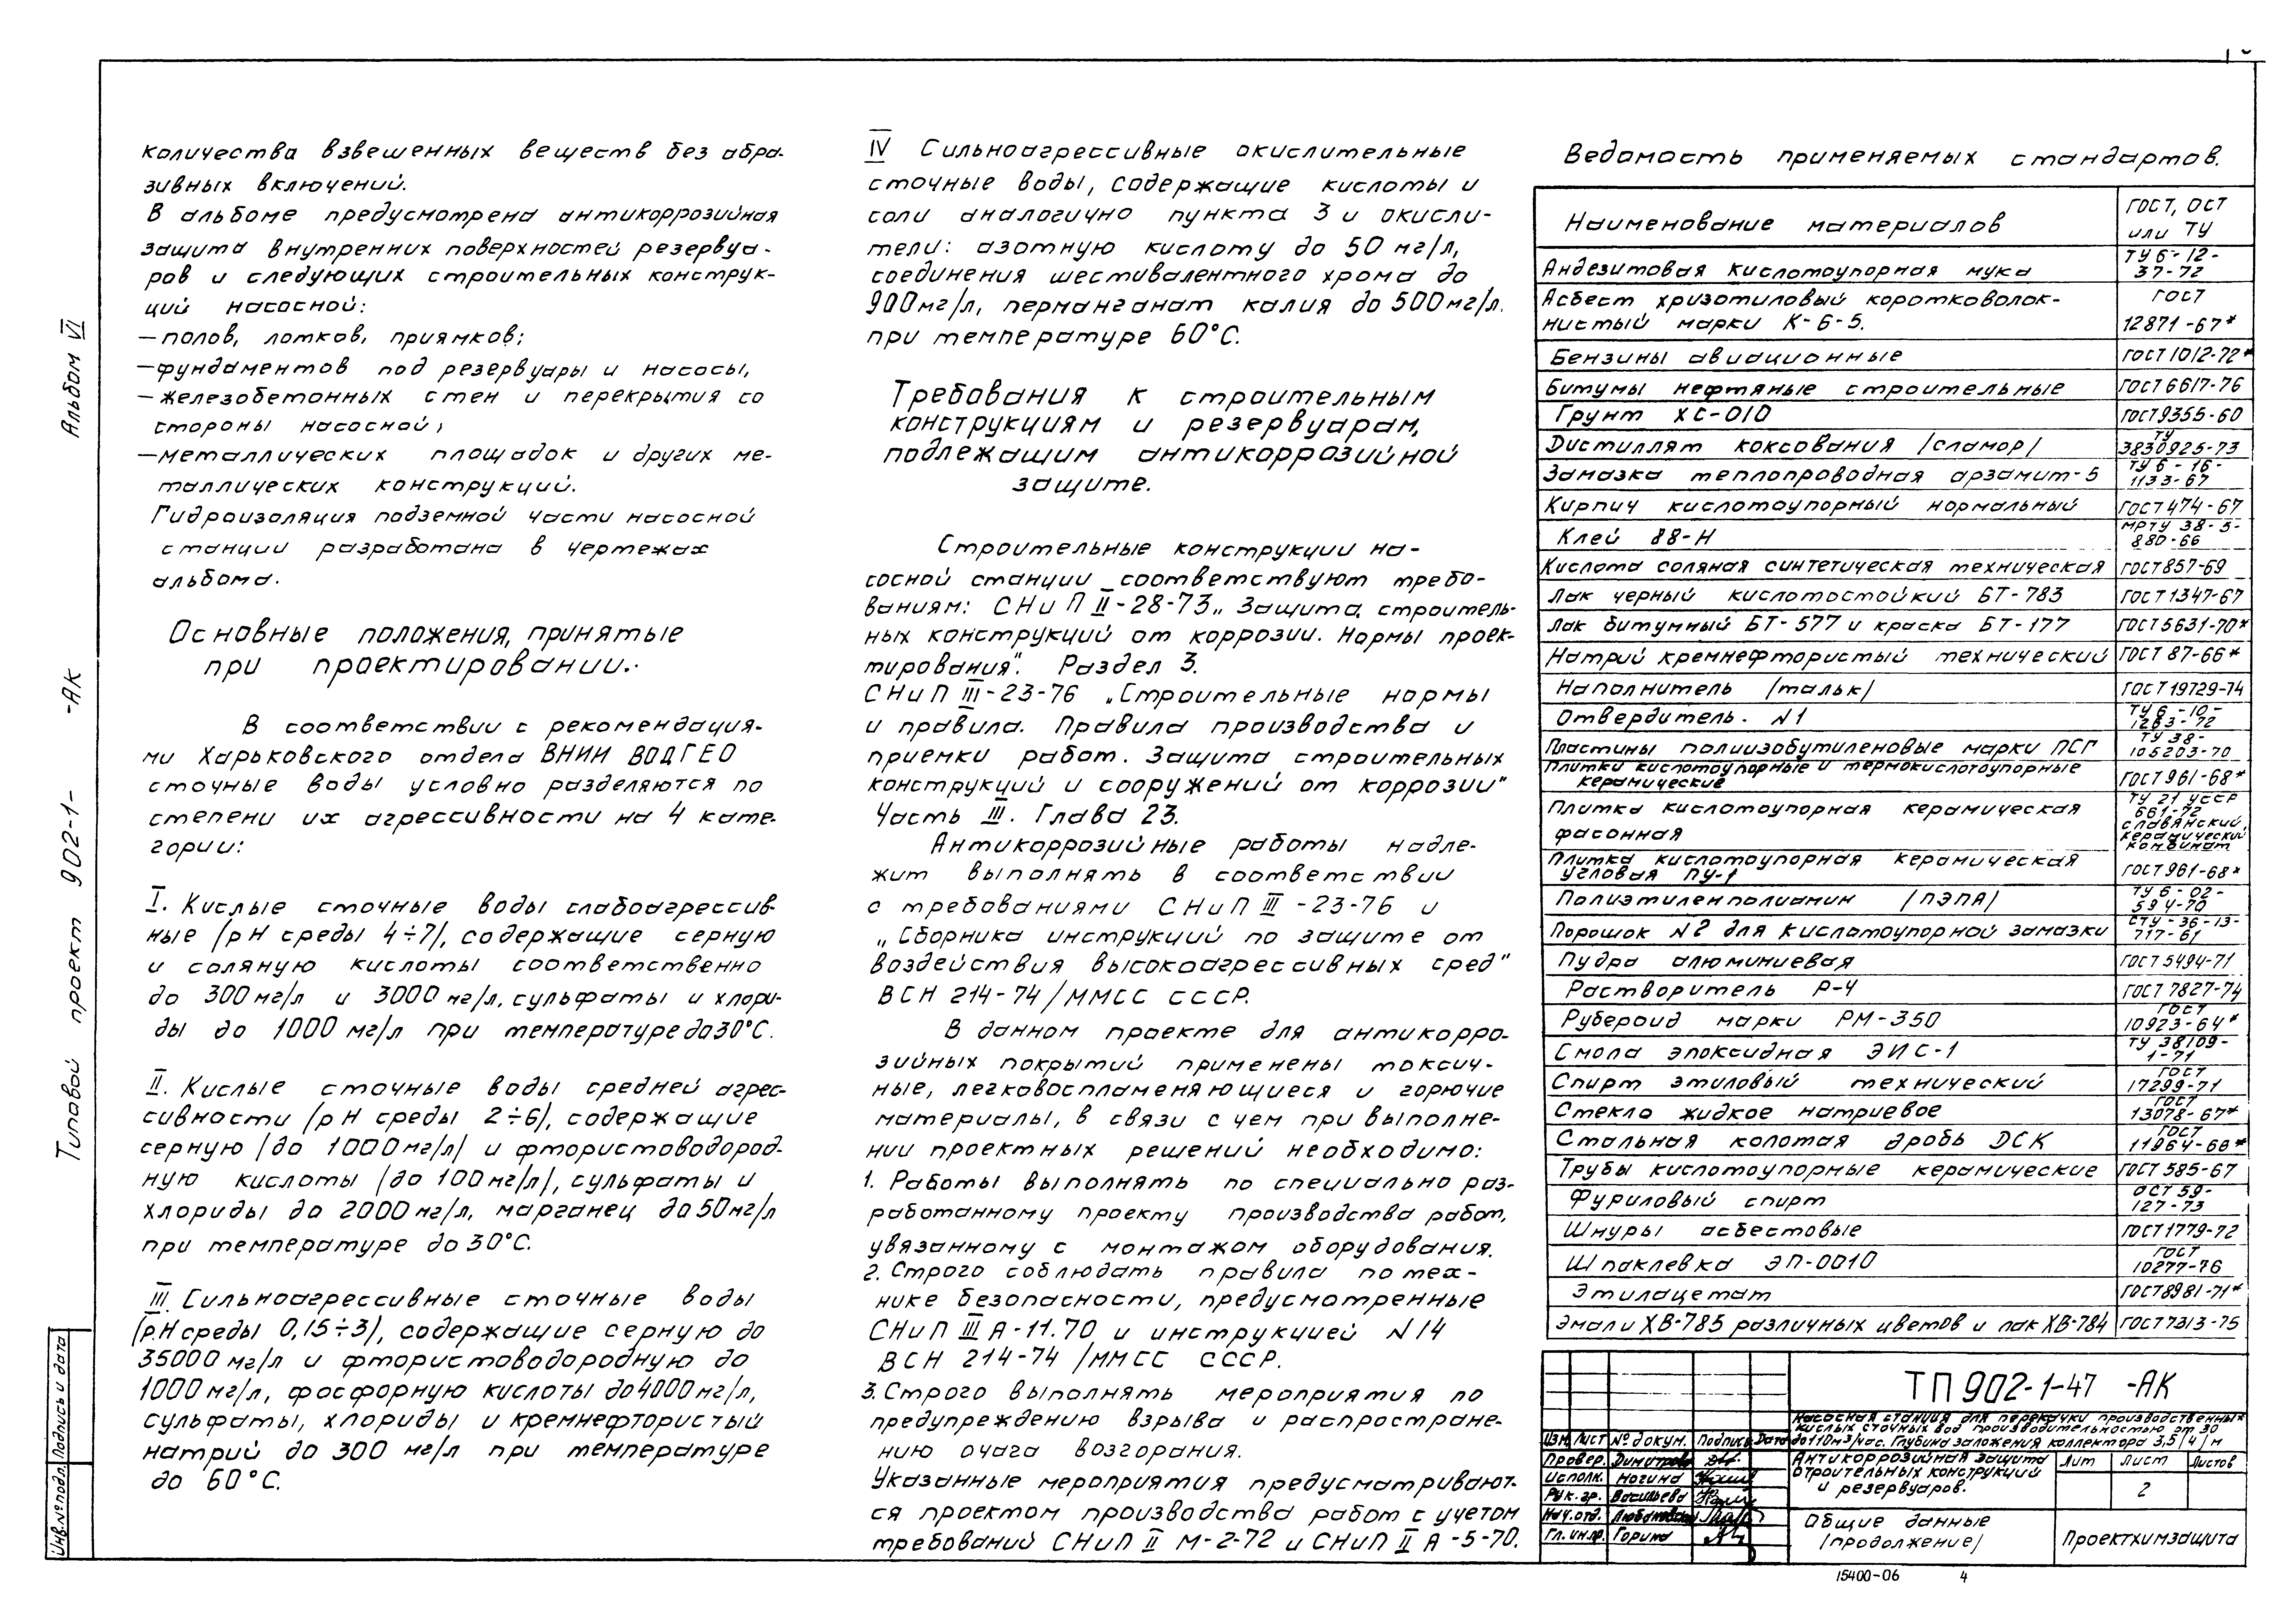 количества взвешенных веществ без абра-
зивных включений.
В альбоме предусмотрена антикоррозийная
защита внутренних поверхностей резервуа-
ров и следующих строительных конструк-
ций насосной:
— полов, лотков, приямков;
— фундаментов под резервуары и насосы,
— железобетонных стен и перекрытия со
стороны насосной;
— металлических площадок и других ме-
таллических конструкций.
Гидроизоляция подземной части насосной
станции разработана в чертежах
альбома.
Основные положения, принятые
при проектировании.
В соответствии с рекомендация-
ми Харьковского отдела ВНИИ ВОДГЕО
сточные воды условно разделяются по
степени их агрессивности на 4 кате-
гории:
I. Кислые сточные воды слабоагрессив-
ные /pH среды 4÷7/, содержащие серную
и соляную кислоты соответственно
до 300 мг/л и 3000 мг/л, сульфаты и хлори-
ды до 1000 мг/л при температуре до 30°С.
II. Кислые сточные воды средней агрес-
сивности /pH среды 2÷6/, содержащие
серную /до 1000 мг/л/ и фтористоводород-
ную кислоты /до 100 мг/л/, сульфаты и
хлориды до 2000 мг/л, марганец до 50 мг/л
при температуре до 30°С.
III. Сильноагрессивные сточные воды
/pH среды 0,15÷3/, содержащие серную до
35000 мг/л и фтористоводородную до
1000 мг/л, фосфорную кислоты до 4000 мг/л,
сульфаты, хлориды и кремнефтористый
натрий до 300 мг/л при температуре
до 60°С.
IV Сильноагрессивные окислительные
сточные воды, содержащие кислоты и
соли аналогично пункта 3 и окисли-
тели: азотную кислоту до 50 мг/л,
соединения шестивалентного хрома до
900 мг/л, перманганат калия до 500 мг/л.
при температуре 60°С.
Требования к строительным
конструкциям и резервуарам,
подлежащим антикоррозийной
защите.
Строительные конструкции на-
сосной станции соответствуют требо-
ваниям: СНиП II-28-73 „Защита строитель-
ных конструкций от коррозии. Нормы проек-
тирования". Раздел 3.
СНиП III-23-76 „Строительные нормы
и правила. Правила производства и
приемки работ. Защита строительных
конструкций и сооружений от коррозии"
Часть III. Глава 23.
Антикоррозийные работы надле-
жит выполнять в соответствии
с требованиями СНиП III-23-76 и
„Сборника инструкций по защите от
воздействия высокоагрессивных сред"
ВСН 214-74 /ММСС СССР.
В данном проекте для антикорро-
зийных покрытий применены токсич-
ные, легковоспламеняющиеся и горючие
материалы, в связи с чем при выполне-
нии проектных решений необходимо:
1. Работы выполнять по специально раз-
работанному проекту производства работ,
увязанному с монтажом оборудования.
2. Строго соблюдать правила по тех-
нике безопасности, предусмотренные
СНиП III А-11.70 и инструкцией N14
ВСН 214-74 /ММСС СССР.
3. Строго выполнять мероприятия по
предупреждению взрыва и распростране-
нию очага возгорания.
Указанные мероприятия предусматривают-
ся проектом производства работ с учетом
требований СНиП II М-2-72 и СНиП II А-5-70.
Ведомость применяемых стандартов.
Наименование материалов ГОСТ, ОСТ или ТУ
Андезитовая кислотоупорная мука ТУ 6-12-37-72
Асбест хризотиловый коротковолок-
нистый марки К-6-5. ГОСТ 12871-67*
Бензины авиационные ГОСТ 1012-72*
Битумы нефтяные строительные ГОСТ 6617-76
Грунт ХС-010 ГОСТ 9355-60
Дистиллят коксования /сламор/ ТУ 3830925-73
Замазка теплопроводная арзамит-5 ТУ 6-16-1133-67
Кирпич кислотоупорный нормальный ГОСТ 474-67
Клей 88-Н МРТУ 38-5-880-66
Кислота соляная синтетическая техническая ГОСТ 857-69
Лак черный кислотостойкий БТ-783 ГОСТ 1347-67
Лак битумный БТ-577 и краска БТ-177 ГОСТ 5631-70*
Натрий кремнефтористый технический ГОСТ 87-66*
Наполнитель /тальк/ ГОСТ 19729-74
Отвердитель. N1 ТУ 6-10-1263-72
Пластины полиизобутиленовые марки ПСГ ТУ 38-105203-70
Плитки кислотоупорные и термокислотоупорные
керамические ГОСТ 961-68*
Плитка кислотоупорная керамическая
фасонная ТУ 21 УССР 661-72 славянский керамический комбинат
Плитка кислотоупорная керамическая
угловая ПУ-1 ГОСТ 961-68*
Полиэтиленполиамин /ПЭПА/ ТУ 6-02-594-70
Порошок N2 для кислотоупорной замазки СТУ-36-13-717-61
Пудра алюминиевая ГОСТ 5494-71
Растворитель Р-4 ГОСТ 7827-74
Рубероид марки РМ-350 ГОСТ 10923-64*
Смола эпоксидная ЭИС-1 ТУ 38109-1-71
Спирт этиловый технический ГОСТ 17299-71
Стекло жидкое натриевое ГОСТ 13078-67*
Стальная колотая дробь ДСК ГОСТ 11964-66*
Трубы кислотоупорные керамические ГОСТ 585-67
Фуриловый спирт ОСТ 59-127-73
Шнуры асбестовые ГОСТ 1779-72
Шпаклевка ЭП-0010 ГОСТ 10277-76
Этилацетат ГОСТ 8981-71*
Эмали ХВ-785 различных цветов и лак ХВ-784 ГОСТ 7313-75
ТП 902-1-47 -АК
Насосная станция для перекачки производственных
кислых сточных вод производительностью от 30
до 110 м3/час. Глубина заложения коллектора 3,5 /4/ м
Изм. Лист № докум. Подпись Дата
Провер. Димитрова
Исполн. Ногина
Рук. гр. Васильева
Нач. отд.
Гл. инж. пр. Горина
Антикоррозийная защита
строительных конструкций
и резервуаров.
Лит Лист Листов
2
Общие данные
/продолжение/
Проектхимзащита
15400-06 4
Альбом VI
Типовой проект 902-1- -АК
Подпись и дата
Инв.№ подл.